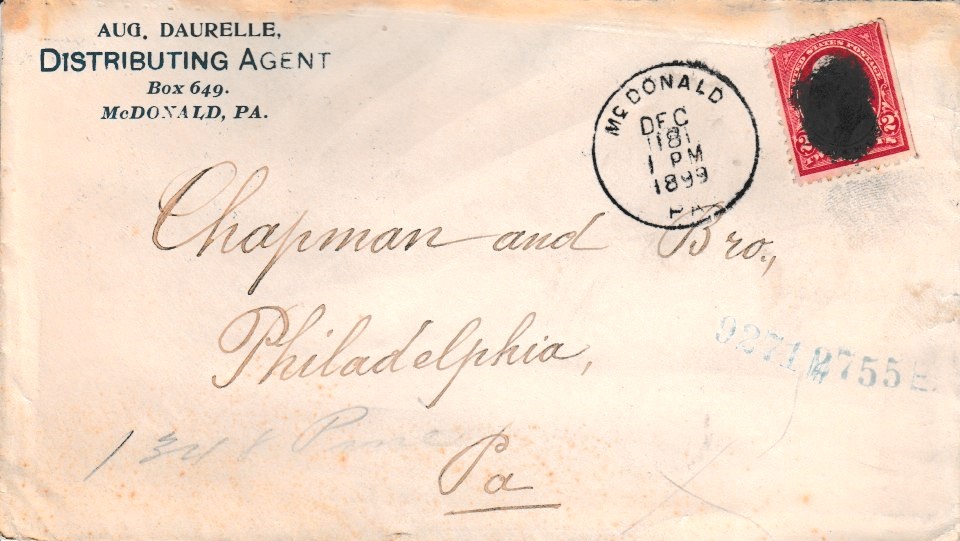 AUG. DAURELLE,
DISTRIBUTING AGENT
Box 649.
McDONALD, PA.
McDONALD
DEC
1 PM
1899
PA
UNITED STATES POSTAGE
2 2
Chapman and Bro.,
Philadelphia,
Pa